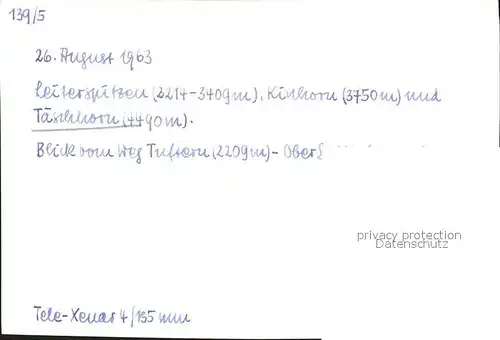 139/5
26. August 1963
Leiterspitzen (3214-3409m), Kinhorn (3750m) und
Täschhorn (4490m).
Blick vom Weg Tuftern (2209m) - Ober
privacy protection
Datenschutz
Tele-Xenar 4/135 mm